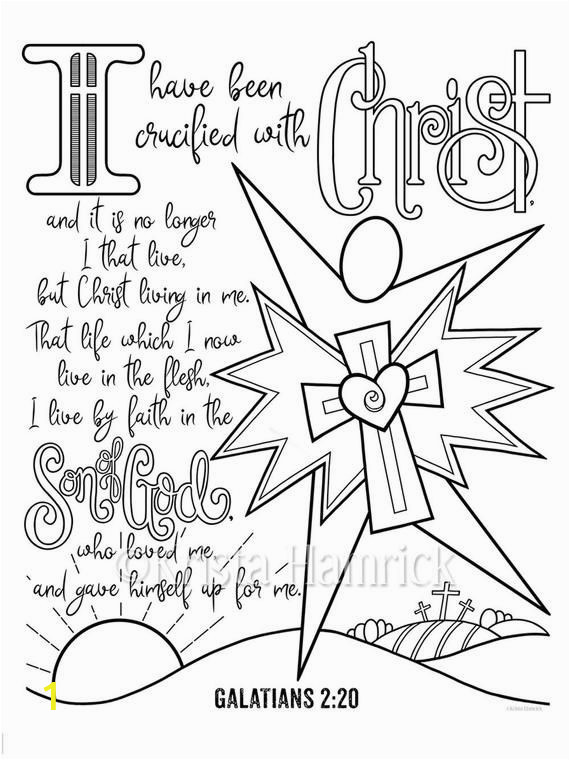 I have been
crucified with Christ,
and it is no longer
I that live,
but Christ living in me.
That life which I now
live in the flesh,
I live by faith in the
Son of God,
who loved me
©Krista Hamrick
and gave himself up for me.
1
GALATIANS 2:20
©Krista Hamrick